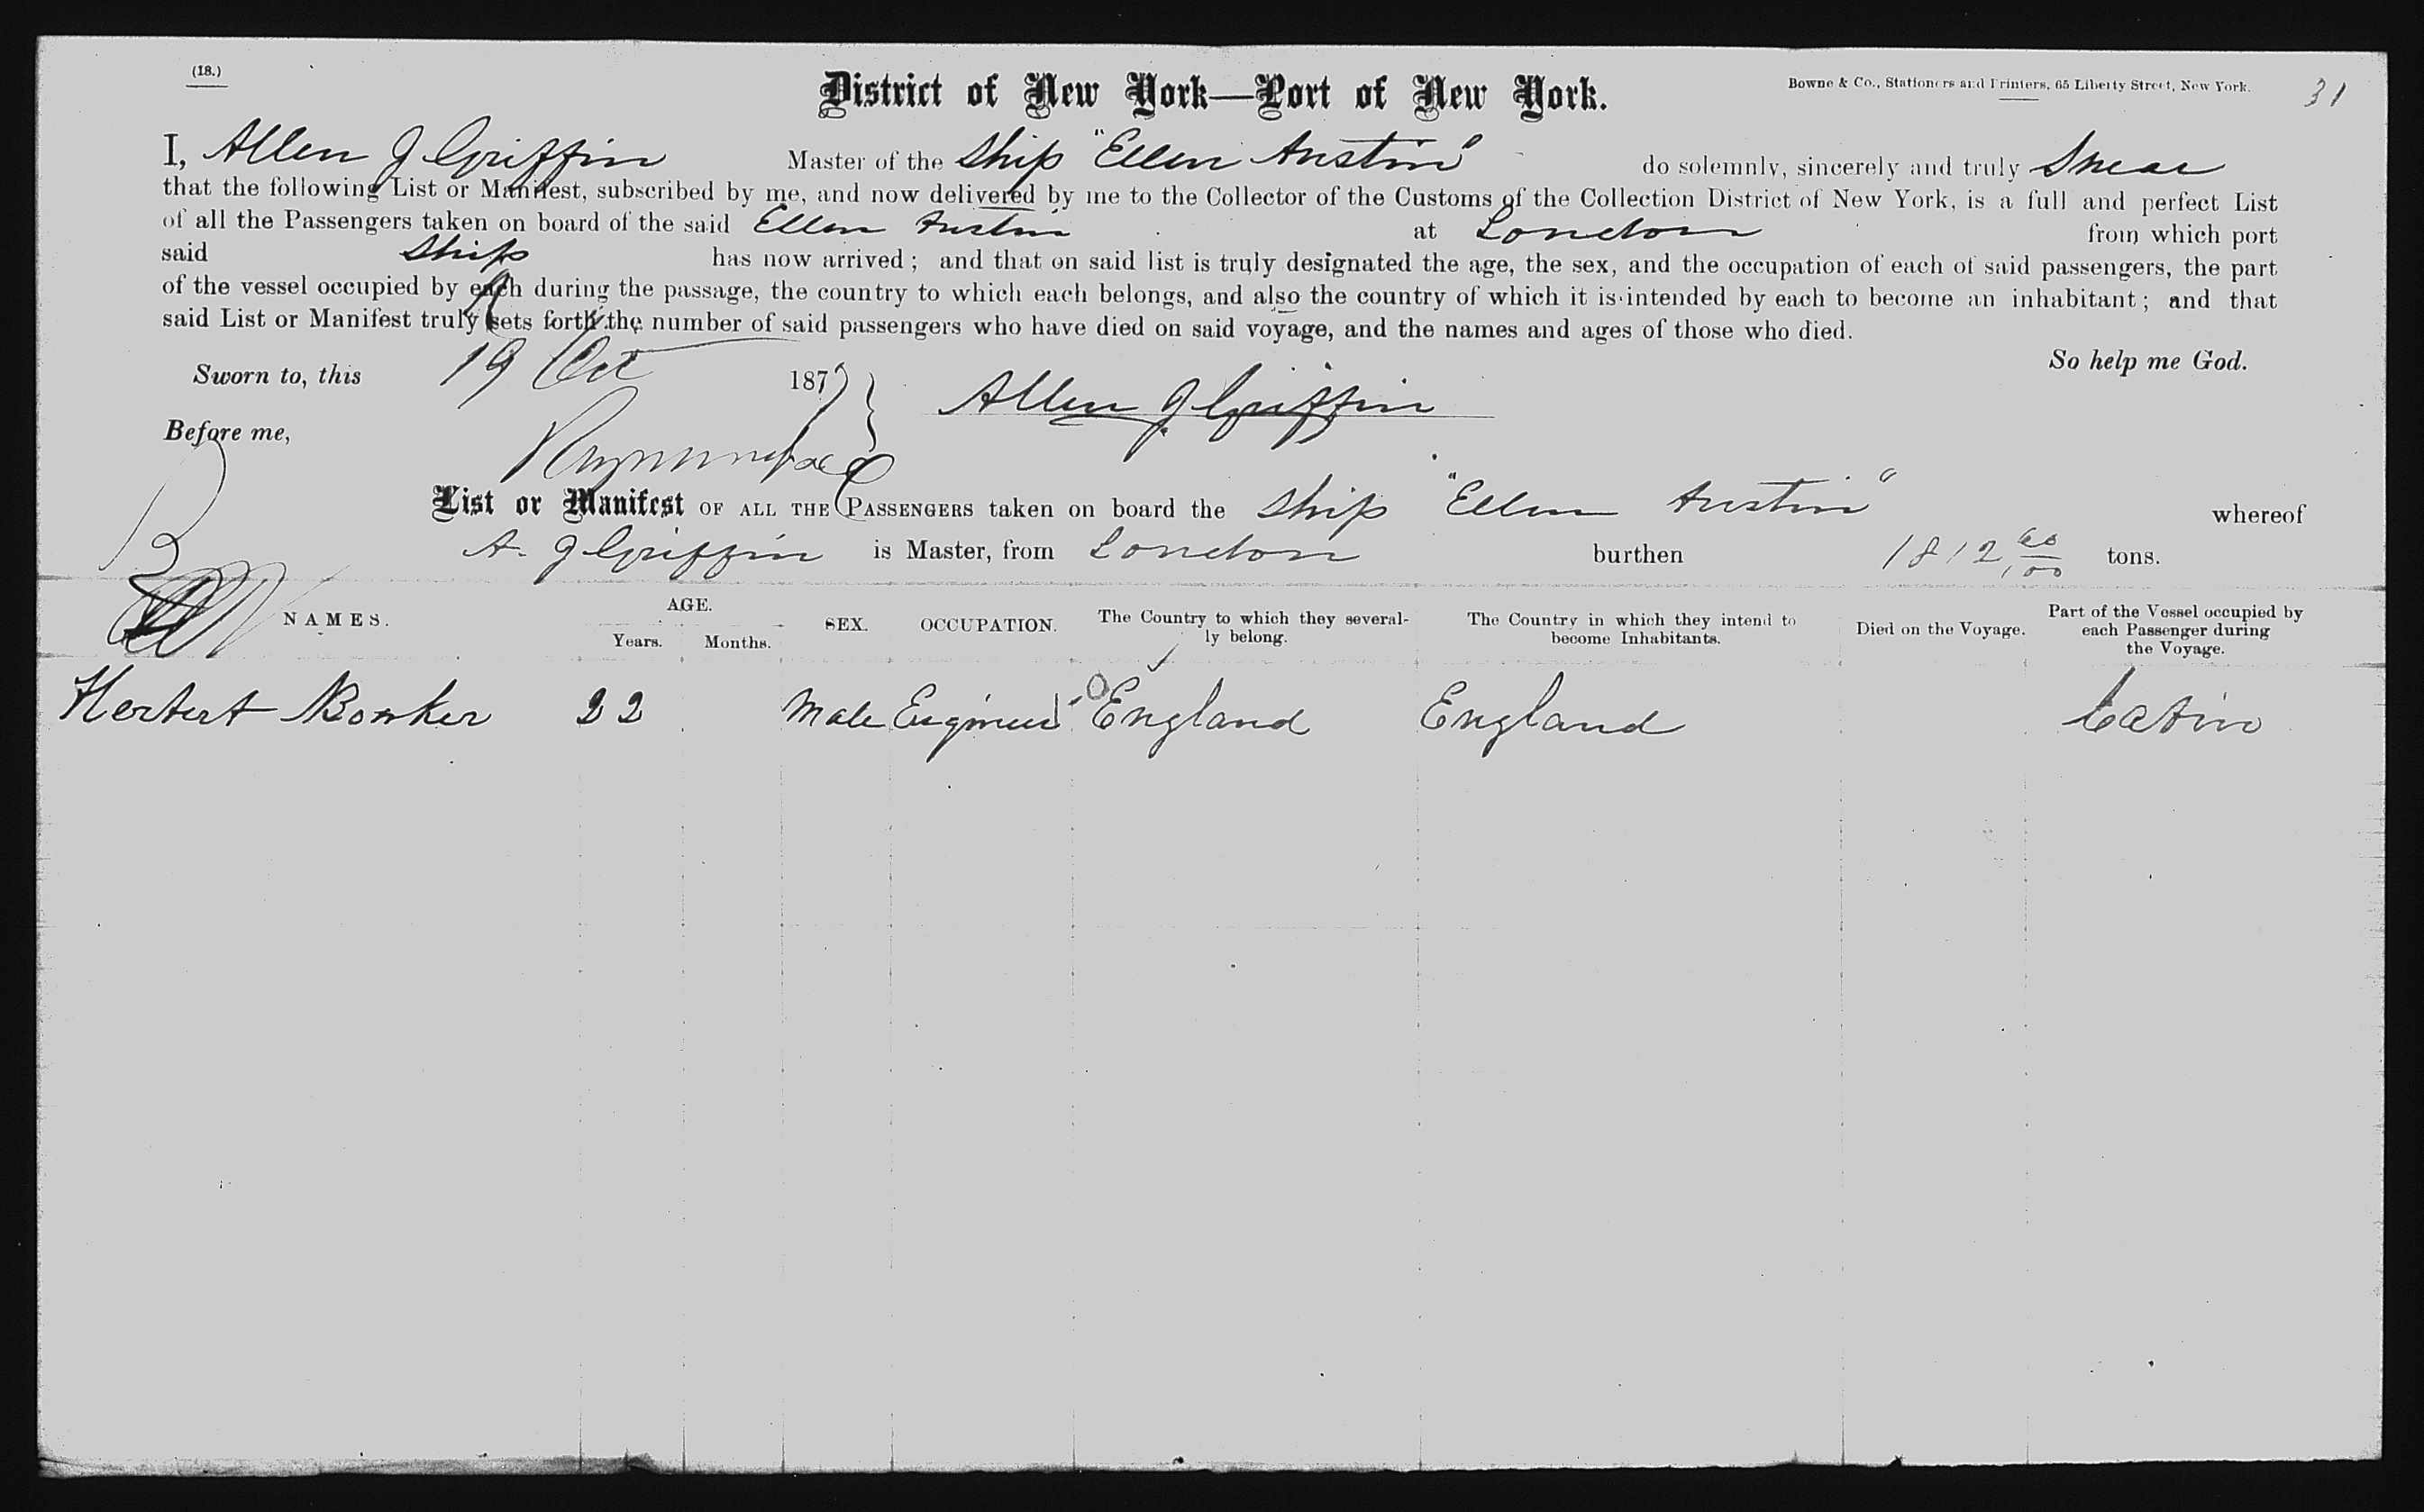 (18.)
District of New York—Port of New York.
Bowne & Co., Stationers and Printers, 65 Liberty Street, New York.
31
I, Allen J Griffin Master of the Ship "Ellen Austin" do solemnly, sincerely and truly Swear
that the following List or Manifest, subscribed by me, and now delivered by me to the Collector of the Customs of the Collection District of New York, is a full and perfect List
of all the Passengers taken on board of the said Ellen Austin at London from which port
said Ship has now arrived; and that on said list is truly designated the age, the sex, and the occupation of each of said passengers, the part
of the vessel occupied by each during the passage, the country to which each belongs, and also the country of which it is intended by each to become an inhabitant; and that
said List or Manifest truly sets forth the number of said passengers who have died on said voyage, and the names and ages of those who died.
So help me God.
Sworn to, this 19 Oct 1877
Allen J Griffin
Before me,
List or Manifest OF ALL THE PASSENGERS taken on board the Ship "Ellen Austin" whereof
A. J Griffin is Master, from London burthen 1812 60/100 tons.
NAMES. AGE. Years. Months. SEX. OCCUPATION. The Country to which they severally belong. The Country in which they intend to become Inhabitants. Died on the Voyage. Part of the Vessel occupied by each Passenger during the Voyage.
Herbert Bowker 22 Male Engineer England England Cabin